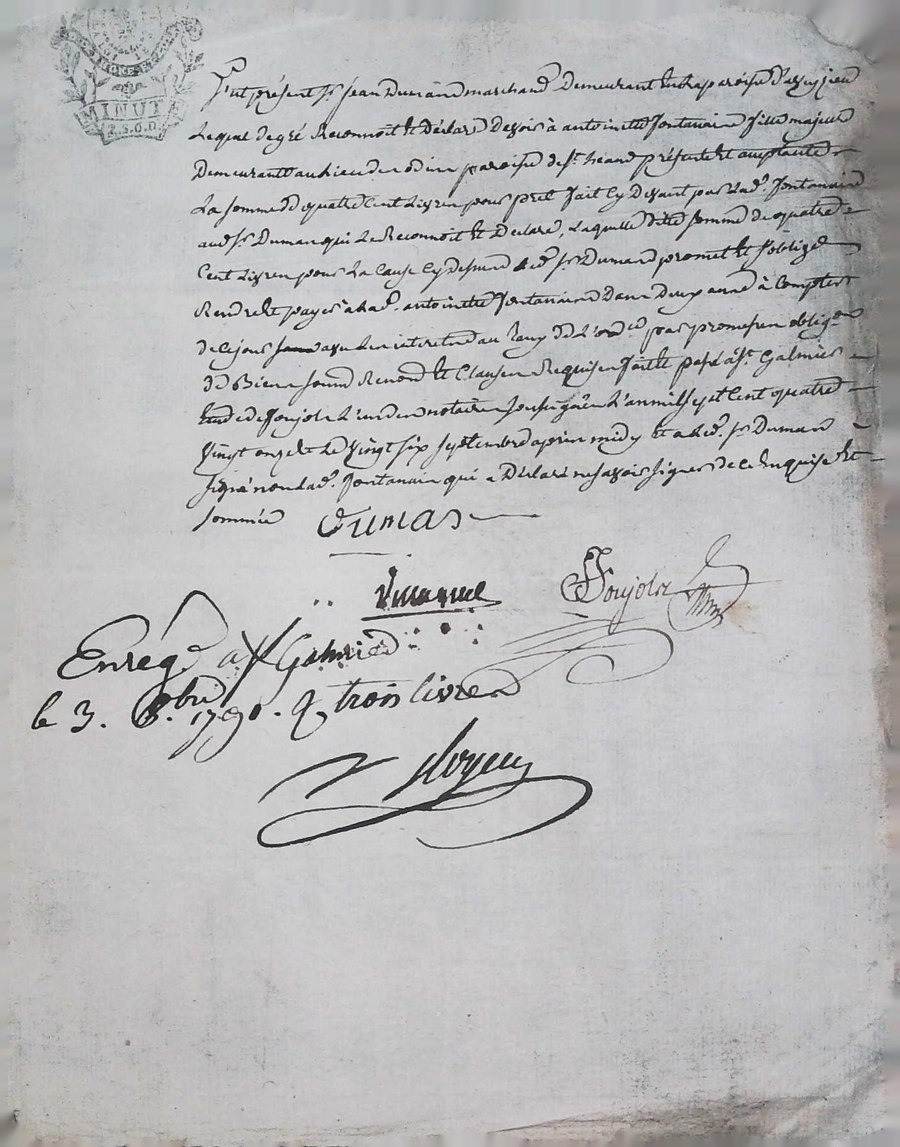 MINUT
2. S. 6. D.
fut présent Sr. Jean Dumas marchand Demeurant en la paroisse
Lequel de gré Reconnoit et Déclare Devoir à antoinette fontanaire fille majeure
Demeurant au lieu de paroisse de St. héand présente et acceptante
La somme de quatre Cent Livres pour prêt fait Cy Devant par Lad. fontanaire
aud Sr. Dumas qui Le Reconnoit et Déclare, Laquelle ditte somme de quatre
Cent Livres pour La Cause Cy dessus led. Sr. Dumas promet et s'oblige
Rendre et payer à Lad. antoinette fontanaire Dans Deux année à Compter
de Ce jour avec Les interets au Taux De L'ord.ce par promesses oblig.on
De Biens soum Renond et Clauses Requises fait et passé à St. Galmier
Etude de Soujols L'un des notaires soussignés L'an mil sept Cent quatre
Vingt onze et Le Vingt six septembre après midy Et a led. Sr. Dumas
signé non Lad. fontanaire qui a Déclaré ne savoir signer de Ce Enquise Et
Sommée
Dumas
Soujols
Enregé a St Galmier
le 3. 8bre 1791. R trois livres